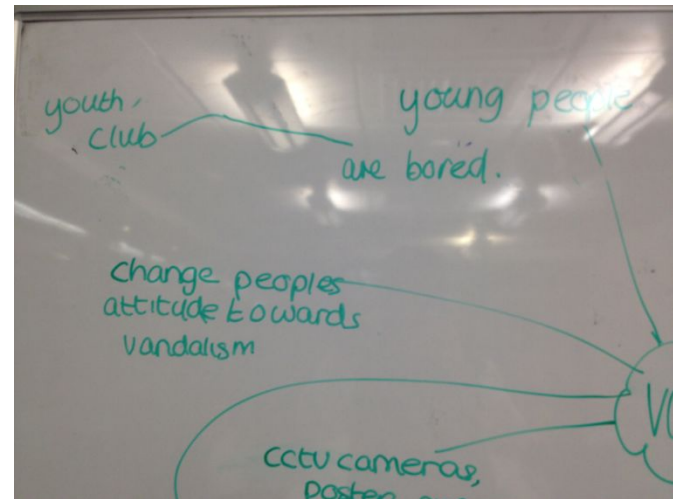 youth
club
young people
are bored.
change peoples
attitude towards
vandalism
cctv cameras,